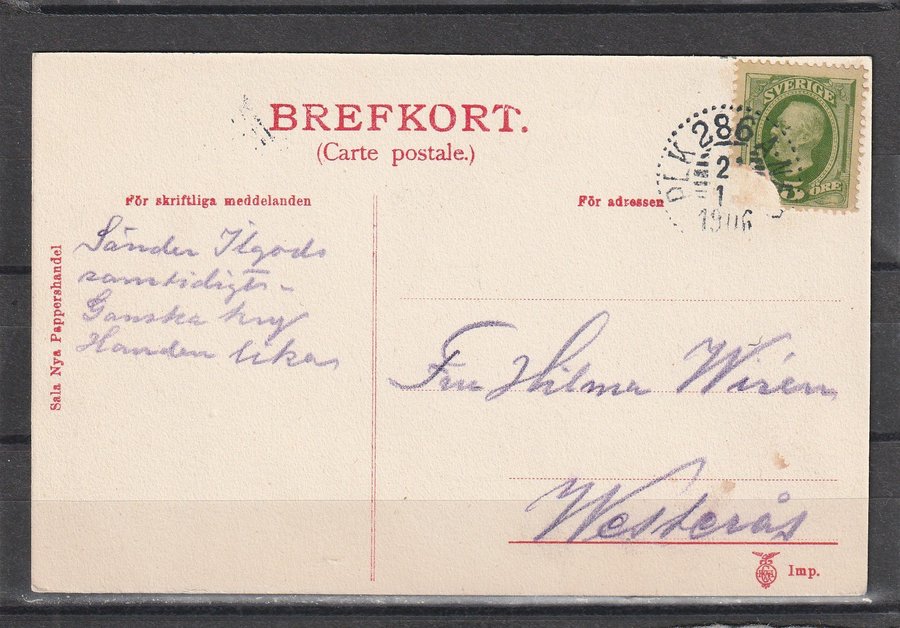 BREFKORT.
(Carte postale.)
För skriftliga meddelanden
För adressen
SVERIGE
5 ÖRE
PLK 286
2
1
1906
Sala Nya Pappershandel
Sänder
samtidigt
Ganska kry
Handen likas
Fru Hilma Wirén
Westerås
Imp.